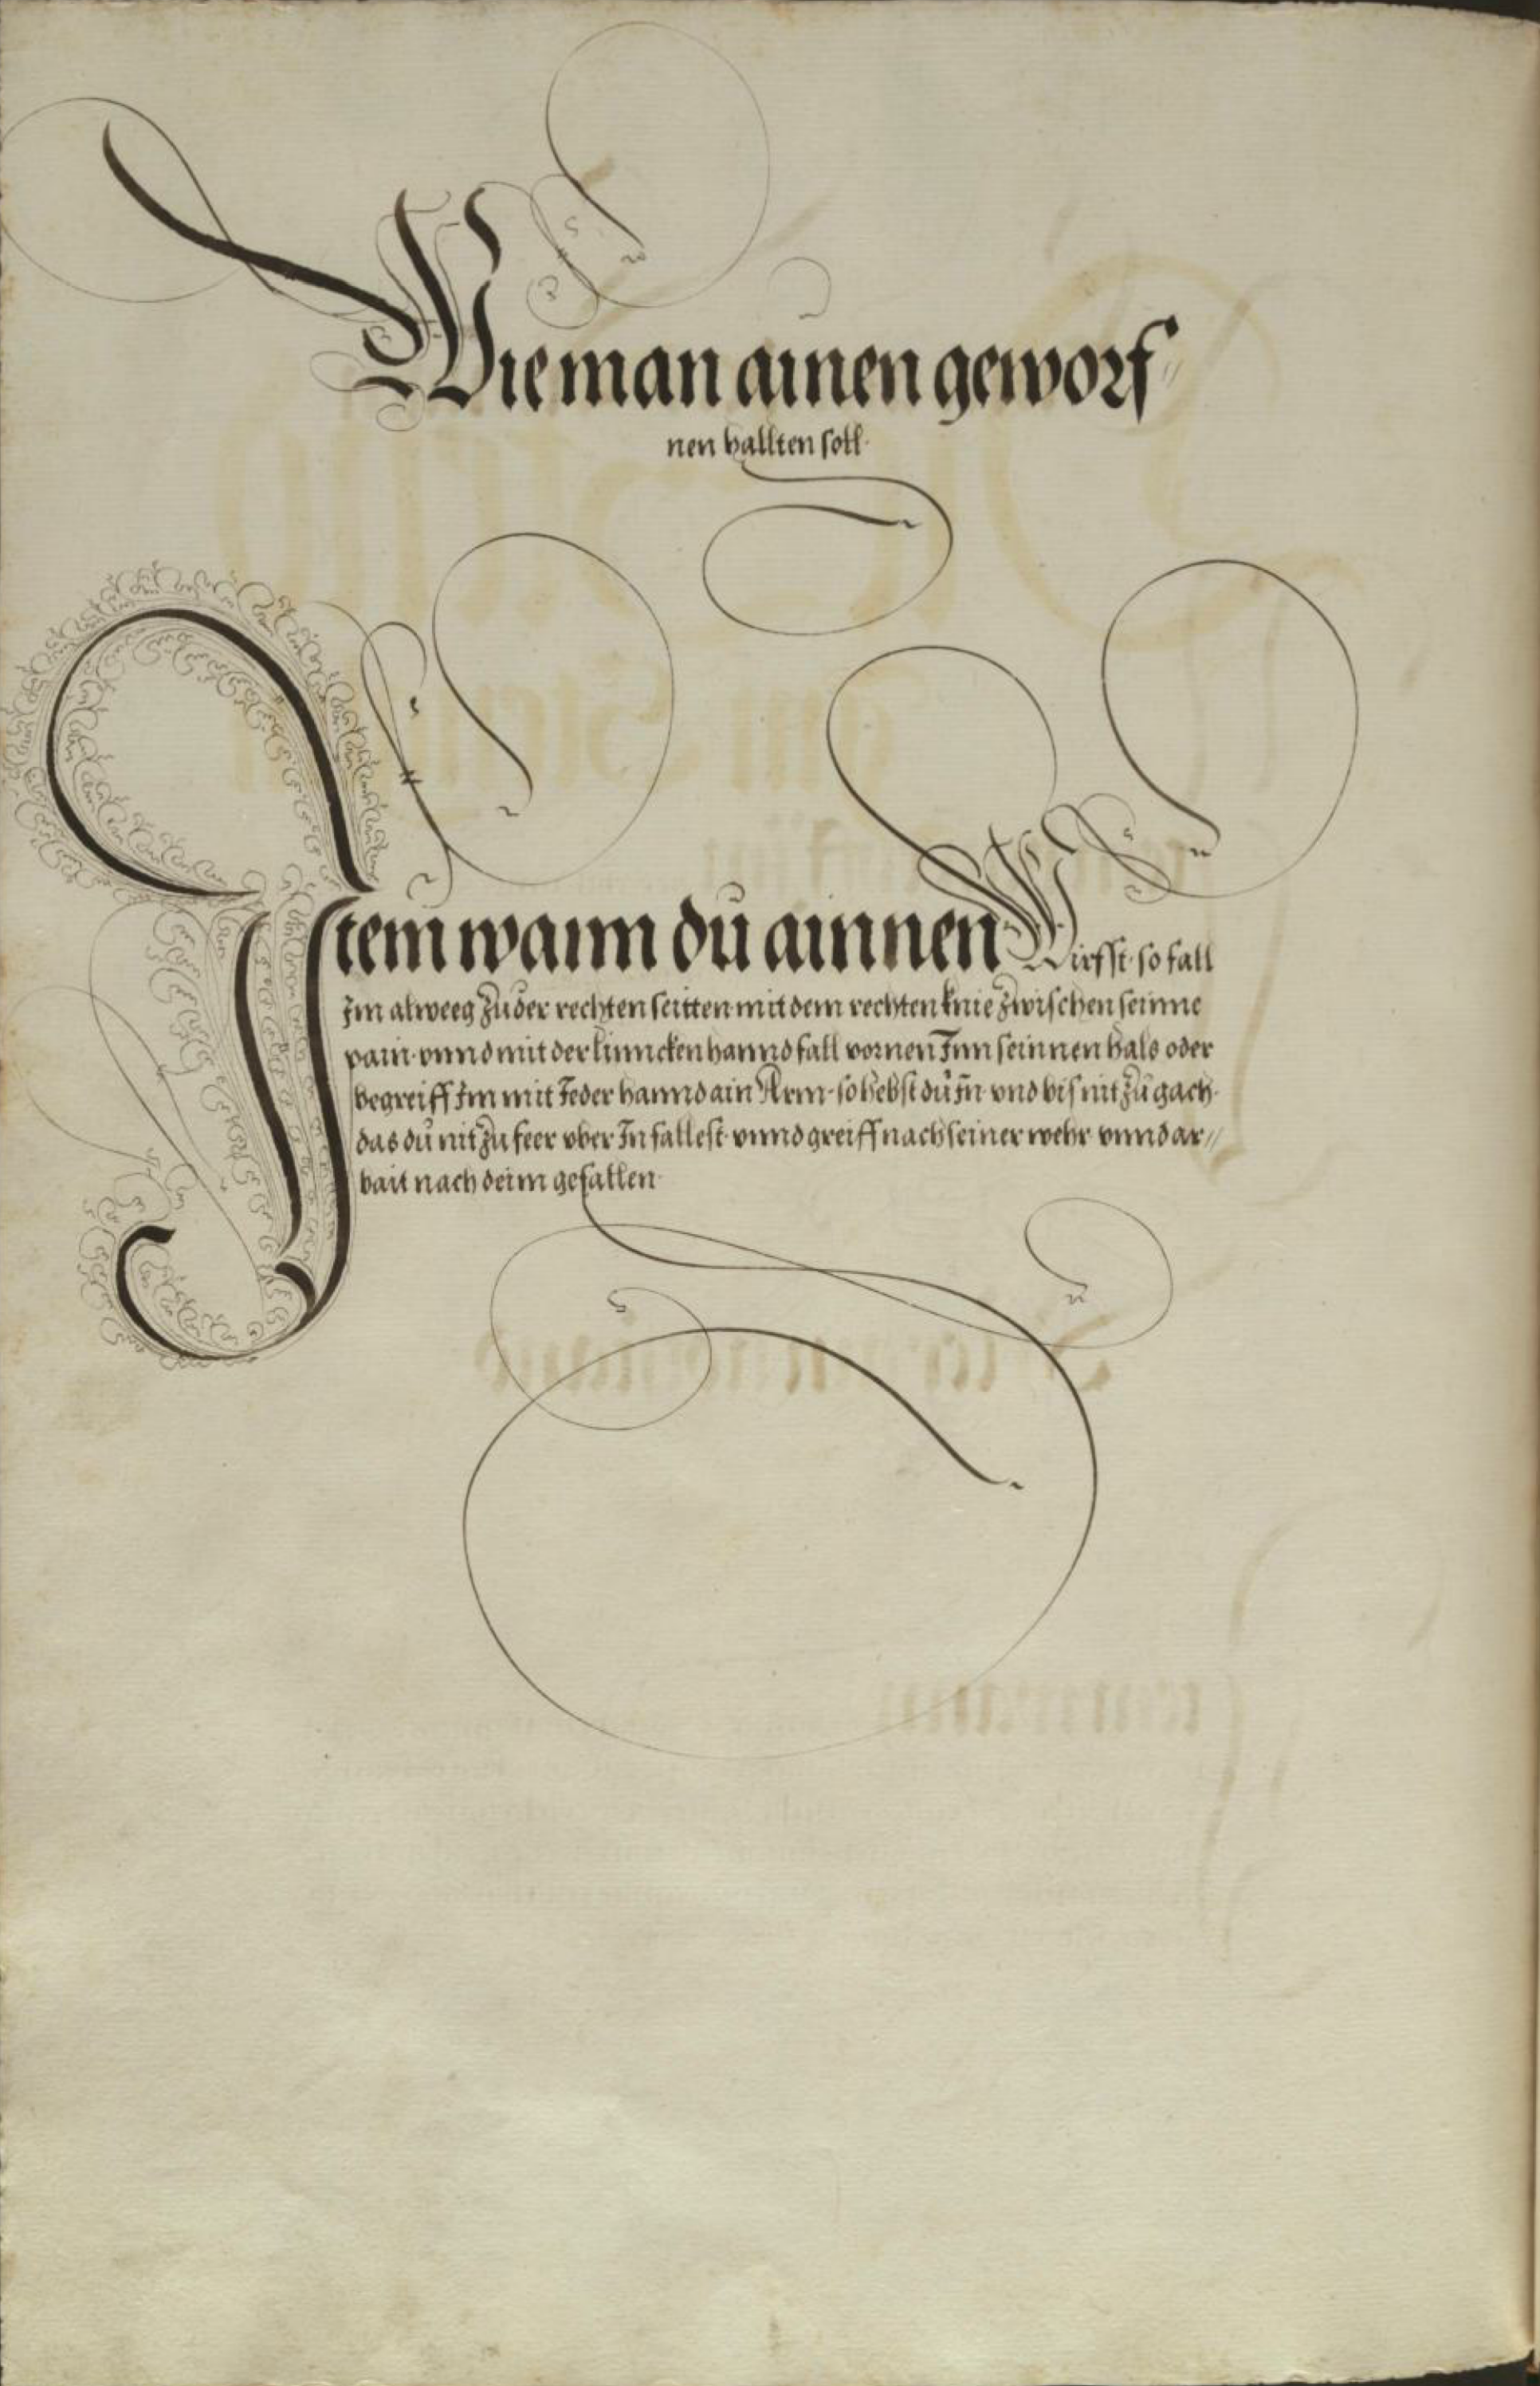 Wie man ainen geworf//
nen hallten soll.
Item wann dů ainnen Wirfst. so fall
Im alweeg zů der rechten seitten. mit dem rechten knie zwischen seinne
pain. vnnd mit der linncken hannd fall vornen Inn seinnen hals oder
begreiff Im mit Ieder hannd ain Arm. so hebst dů In. vnd bis nit zů gach.
das dů nit zu feer vber In fallest. vnnd greiff nach seiner wehr vnnd ar//
bait nach deim gefallen.